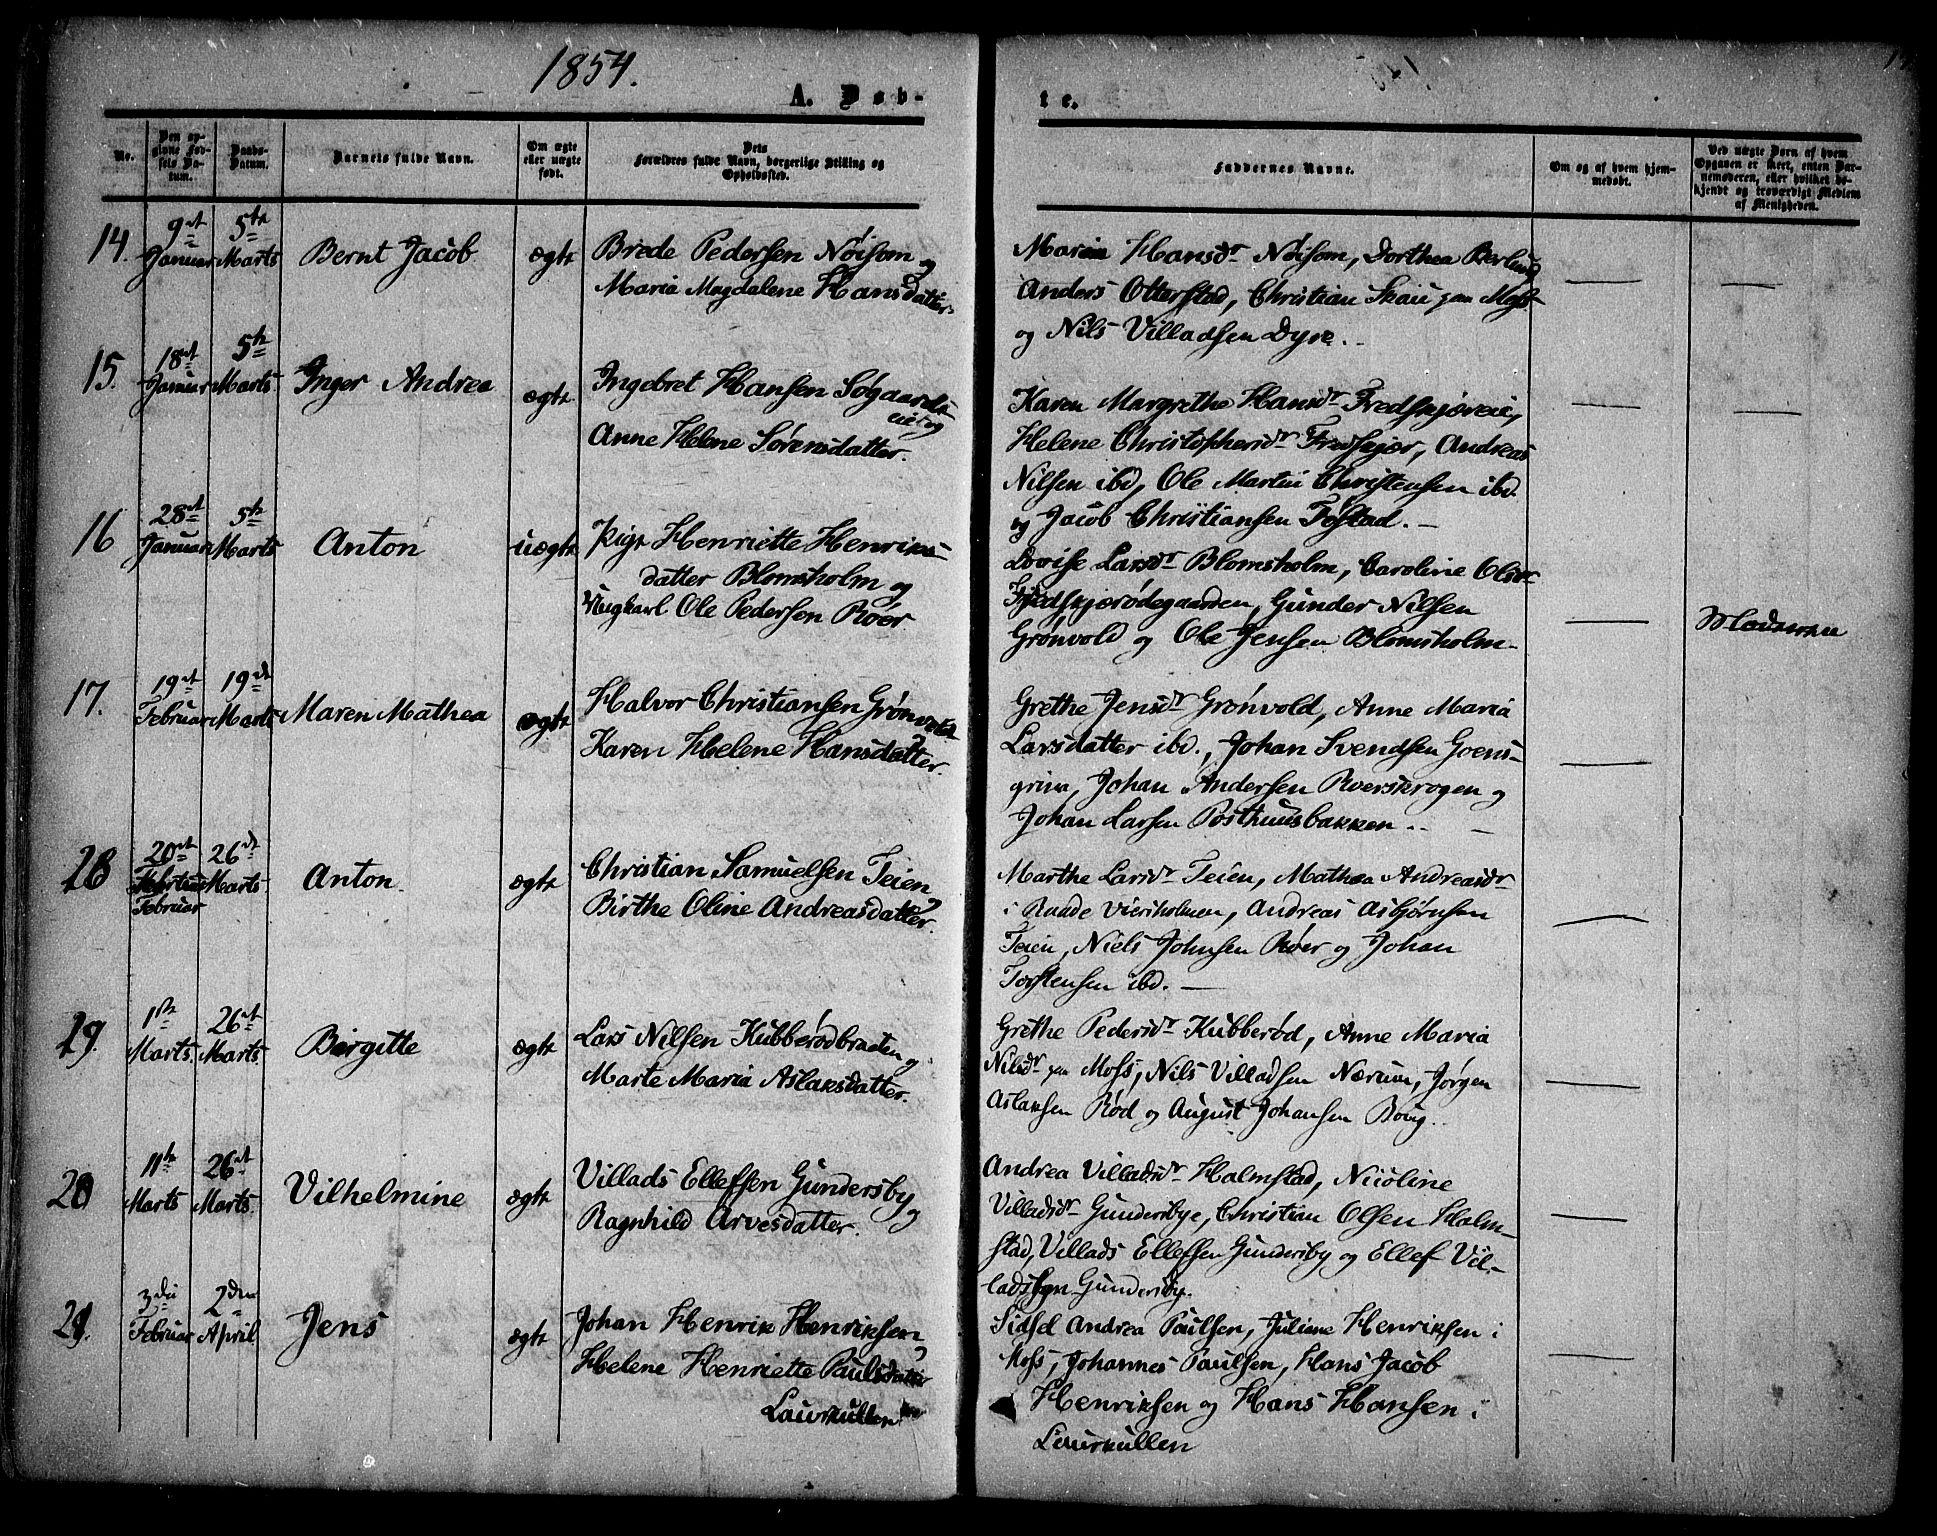 1854.
A. Døb-
te.
No.
Den op-
givne Fød-
sels Da-
tum.
Daabs-
Datum.
Barnets fulde Navn.
Om ægte
eller uægte
født.
Dets
Forældres fulde Navn, borgerlige Stilling og
Opholdssted.
Faddernes Navne.
Om og af hvem hjem-
medøbt.
Ved uægte Børn af hvem
Opgaven er skeet, enten Bar-
nemoderen, eller hvilket be-
kjendt og troværdigt Medlem
af Menigheden.
14. 9et Januar 5te Marts Bernt Jacob ægte
Brede Pedersen Nøisom og
Maria Magdalene Hansdatter.
Maria Hansdr Nøisom, Dorthea Berlund
Anders Otterstad, Christian Skau paa Moss
og Nils Villadsen Dyre.
15. 18et Januar 5te Marts Inger Andrea ægte
Ingebret Hansen Søgaards-
eiet og
Anne Helene Sørensdatter.
Karen Margrethe Hansdr Fredskjøreie,
Helene Christophersdr Fredskjør, Andreas
Nilsen ibd, Ole Martin Christensen ibd.
og Jacob Christiansen Tostad. —
16 28et Januar 5te Marts Anton uægte
Pige Henriette Henriks-
datter Blomsholm og
Ungkarl Ole Pedersen Roer
Lovise Larsdr Blomsholm, Caroline Olsdr
Fredskjørødegaarden, Gunder Nilsen
Grønvold og Ole Jensen Blomsholm.
Moderen
17. 19et Februar 19de Marts Maren Mathea ægte
Halvor Christiansen Grønvold
Karen Helene Hansdatter.
Grethe Jensdr Grønvold, Anne Maria
Larsdatter ibd., Johan Svendsen Goens-
grim, Johan Andersen Roerskrogen og
Johan Larsen Posthuusbakken. —
18 20et Februar 26de Marts Anton. ægte
Christian Samuelsen Teien og
Birthe Oline Andreasdatter.
Marthe Larsdr Teien, Mathea Andreasdr
i Raade Viersholmen, Andreas Asbjørnsen
Teien, Niels Johnsen Roer og Johan
Torstensen ibd. —
19. 1ste Marts. 26et Marts. Birgitte ægte
Lars Nilsen Kubberødbraaten og
Marte Maria Aslaksdatter.
Grethe Pedersdr Kubberød, Anne Maria
Nilsdr paa Moss, Nils Villadsen Nærum, Jørgen
Aslaksen Rød og August Johansen Boug.
20 11te Marts 26et Marts. Vilhelmine ægte
Villads Ellefsen Gundersby og
Ragnhild Arvesdatter.
Andrea Villadsdr Halmstad, Nicoline
Villadsdr Gundersbye, Christian Olsen Halm-
stad, Villads Ellefsen Gundersby og Ellef Vil-
ladssen Gundersby.
21. 3die Februar 2den April Jens ægte
Johan Henrik Henriksen og
Helene Henriette Paulsdatter
Laurkullen
Sidsel Andrea Paulsen, Juliane Henriksen i
Moss, Johannes Paulsen, Hans Jacob
Henriksen og Hans Hansen i
Laurkullen